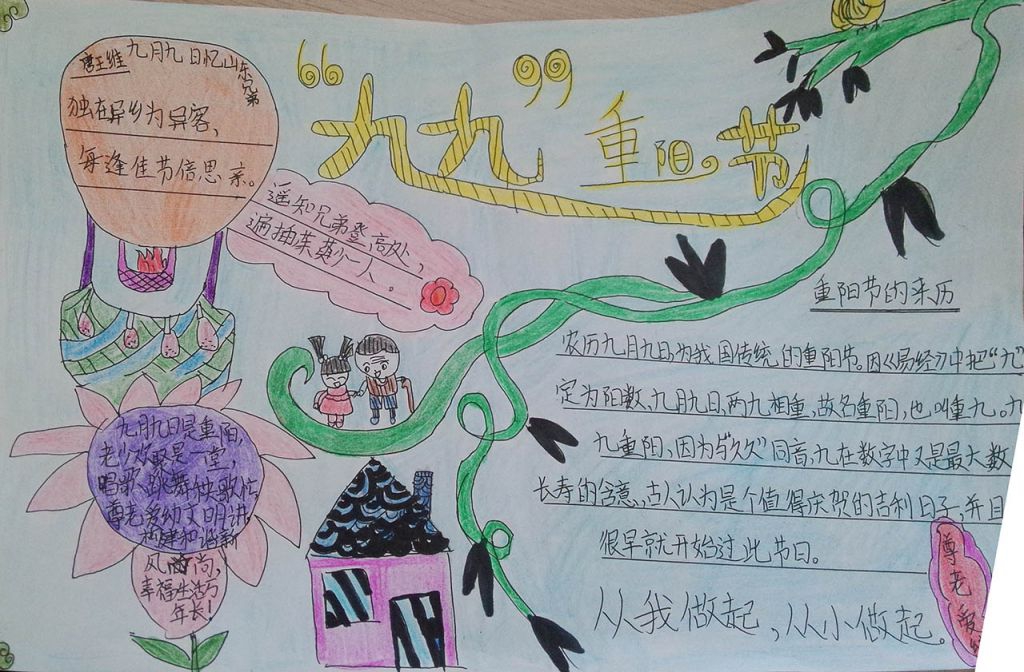 “九九”重阳节
唐王维 九月九日忆山东兄弟
独在异乡为异客，
每逢佳节倍思亲。
遥知兄弟登高处，
遍插茱萸少一人。
九月九日是重阳，
老少欢聚是一堂，
唱歌跳舞秧歌忙
尊老爱幼文明讲
构建和谐新
风尚，
幸福生活万
年长！
重阳节的来历
农历九月九日，为我国传统的重阳节。因《易经》中把“九”
定为阳数，九月九日，两九相重，故名重阳，也叫重九。九
九重阳，因为与“久久”同音，九在数字中又是最大数
长寿的含意，古人认为是个值得庆贺的吉利日子，并且
很早就开始过此节日。
从我做起，从小做起。
尊老爱